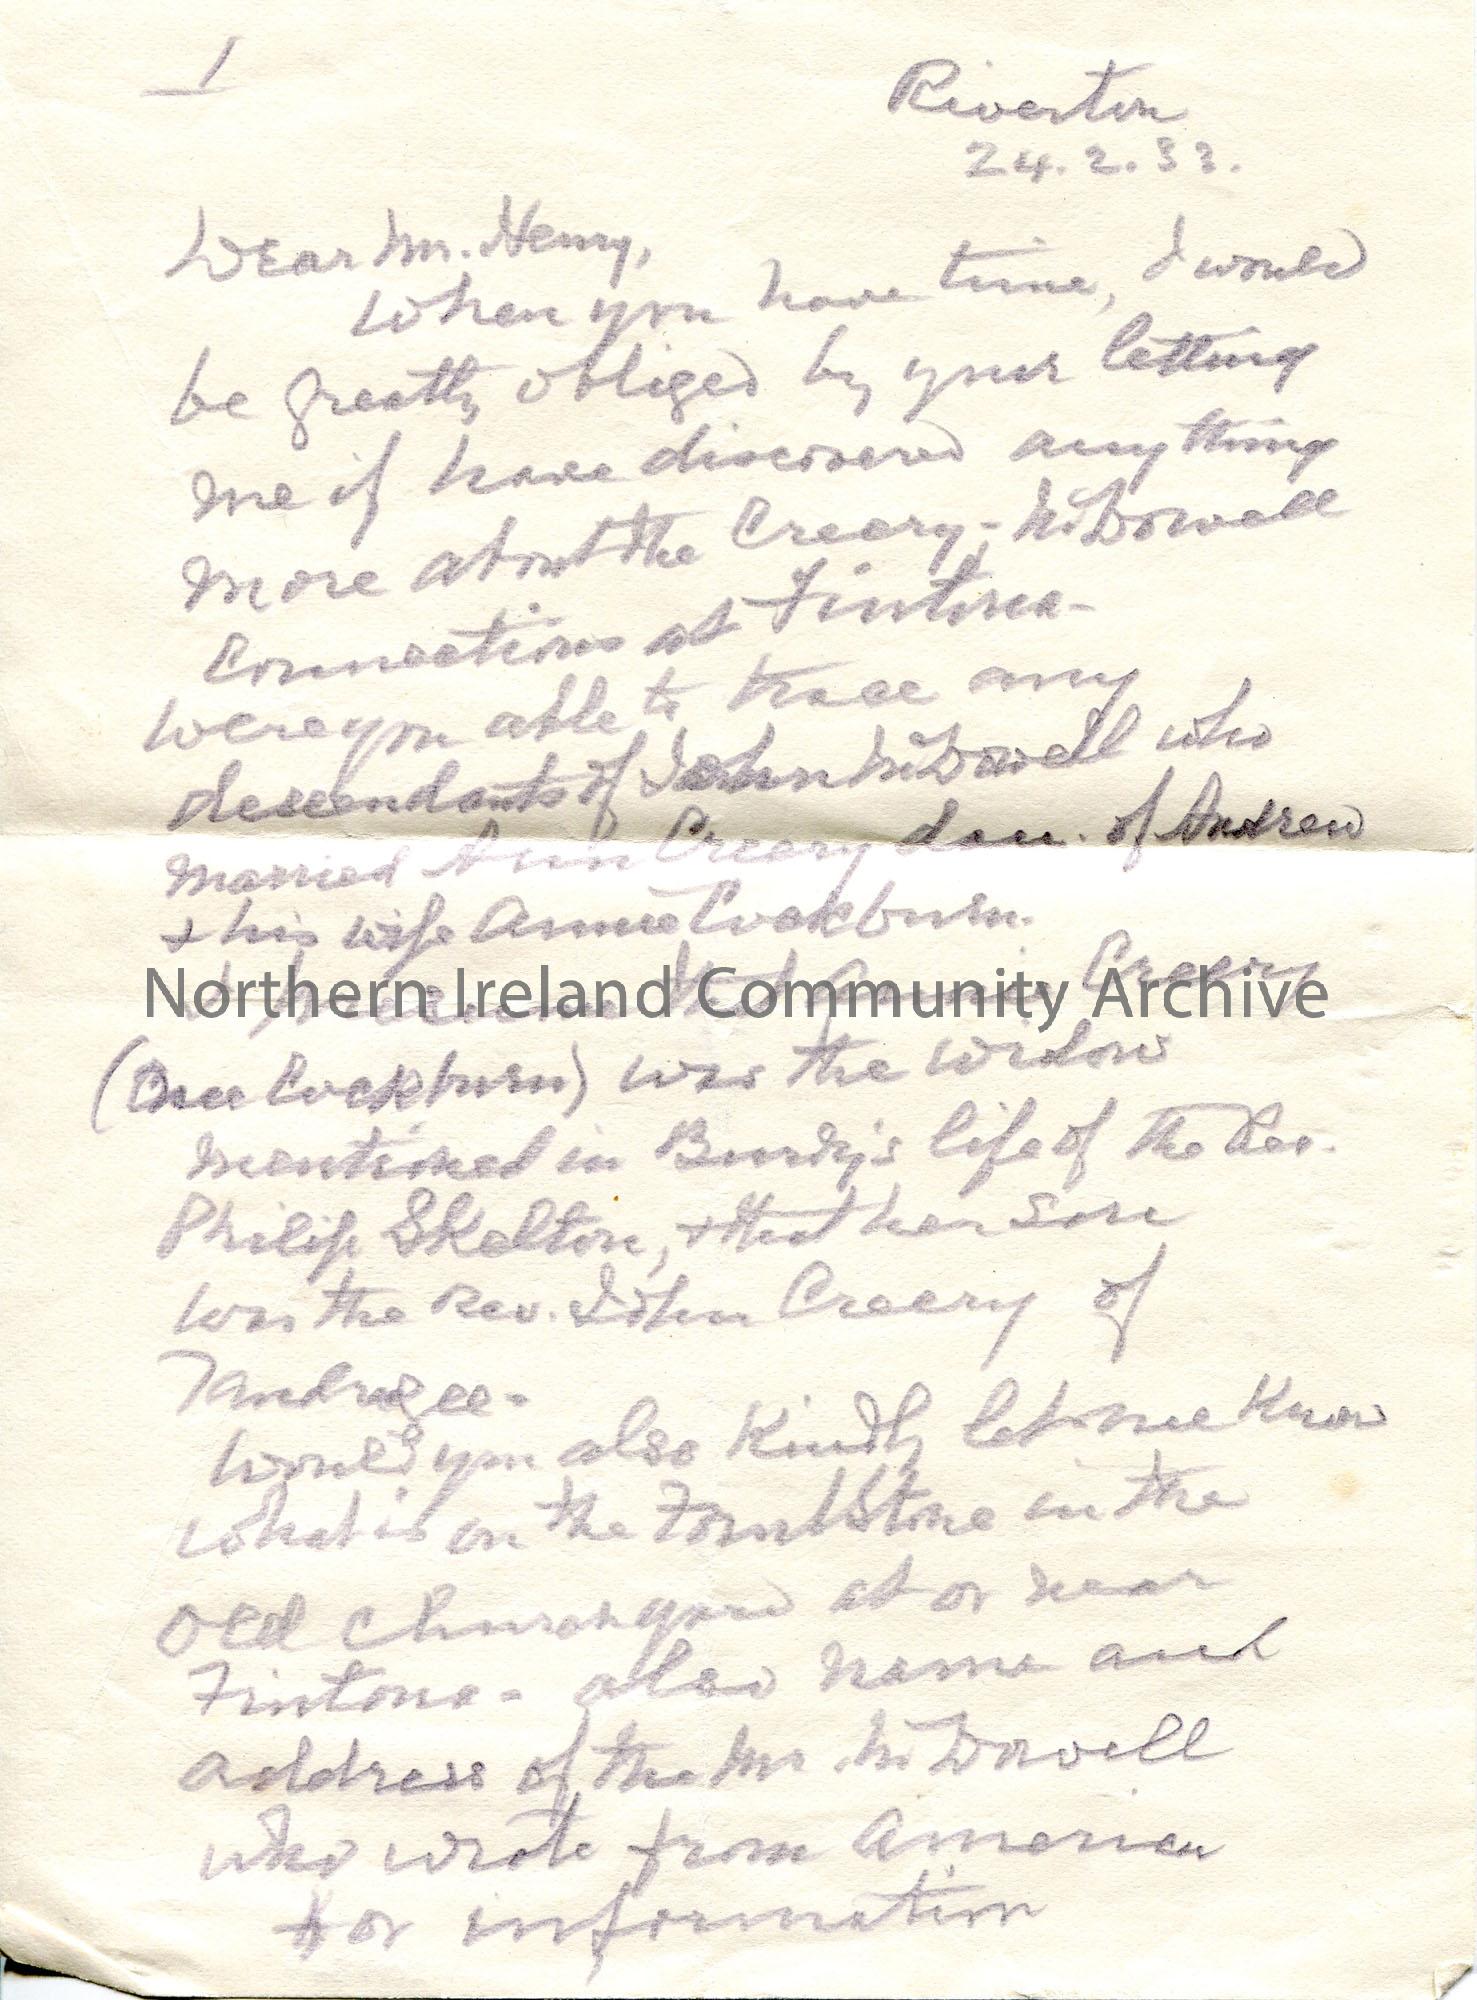 1
Riverton
24.2.33.
Dear Mr. Henry,
When you have time, I would
be greatly obliged by your letting
me if have discovered anything
more about the Creery-McDowell
connections at Fintona-
Were you able to trace any
descendants of John McDowell who
married Ann Creery dau. of Andrew
+ his wife Annie Cockburn.
that Annie Creery
Northern Ireland Community Archive
(nee Cockburn) was the widow
mentioned in Burdy's life of the Rev.
Philip Skelton, + that her son
was the Rev. John Creery of
Tandragee-
Would you also kindly let me know
what is on the Tombstone in the
old churchyard at or near
Fintona- also name and
address of the Mr McDowell
who wrote from America
for information